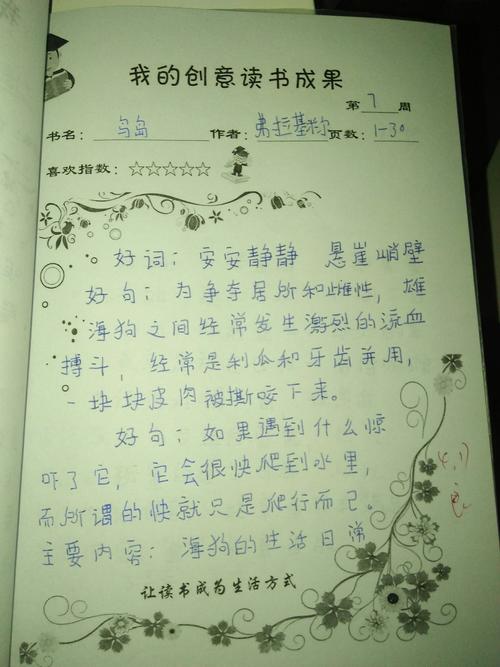 我的创意读书成果
第7周
书名：鸟岛 作者：弗拉基米尔 页数：1-30
喜欢指数：☆☆☆☆☆
好词：安安静静 悬崖峭壁
好句：为争夺居所和雌性，雄
海狗之间经常发生激烈的流血
搏斗，经常是利瓜和牙齿并用，
一块块皮肉被撕咬下来。
好句：如果遇到什么惊
吓了它，它会很快爬到水里，
而所谓的快就只是爬行而已。
主要内容：海狗的生活日常
让读书成为生活方式